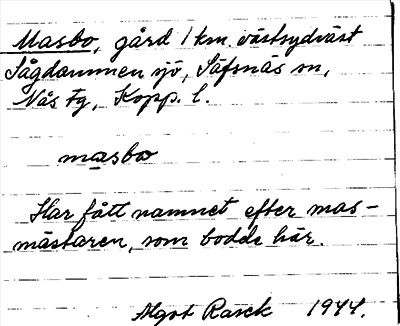 Masbo, gård 1 km. västsydväst
Sågdammen sjö, Säfsnäs sn,
Nås fg, Kopp. l.
masbo
Har fått namnet efter mas-
mästaren, som bodde här.
Algot Rasck 1944.